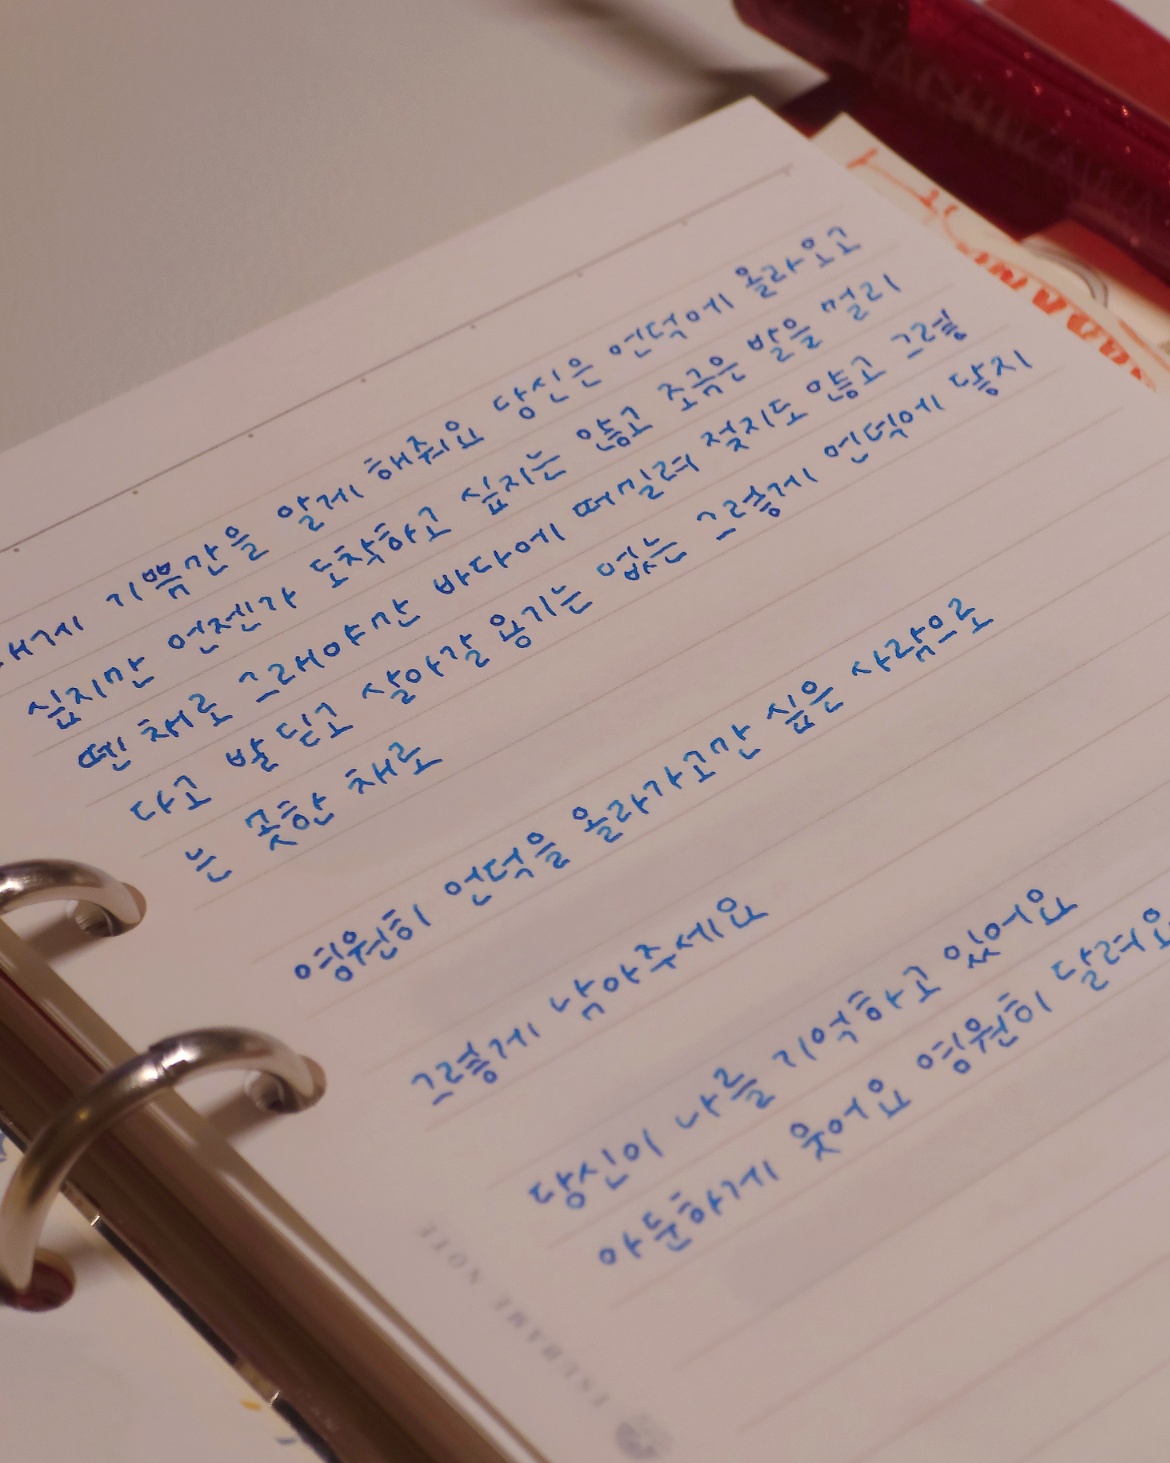 내게 기쁨만을 알게 해줘요 당신은 언덕에 올라오고
싶지만 언젠가 도착하고 싶지는 않고 조금은 발을 멀리
뗀 채로 그래야만 바다에 떠밀려 젖지도 않고 그렇
다고 발 딛고 살아갈 용기는 없는 그렇게 언덕에 닿지
는 못한 채로
영원히 언덕을 올라가고만 싶은 사람으로
그렇게 남아주세요
당신이 나를 기억하고 있어요
아둔하게 웃어요 영원히 달려요
TSUBAME NOTE
TACHIKAWA